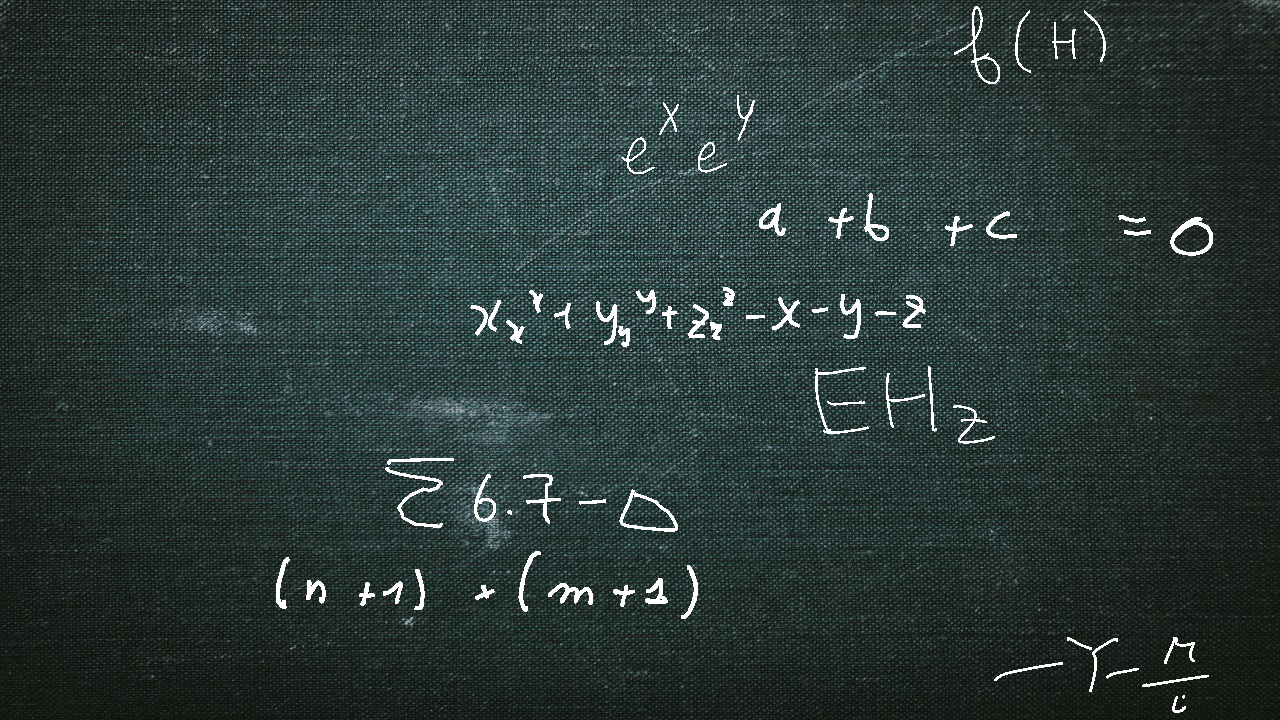 f(H)
e^x e^y
a +b +c = 0
x_x^x + y_y^y + z_z^z - x - y - z
EH_z
Σ 6.7 - Δ
(n +1) + (m +1)
- Y - M/i